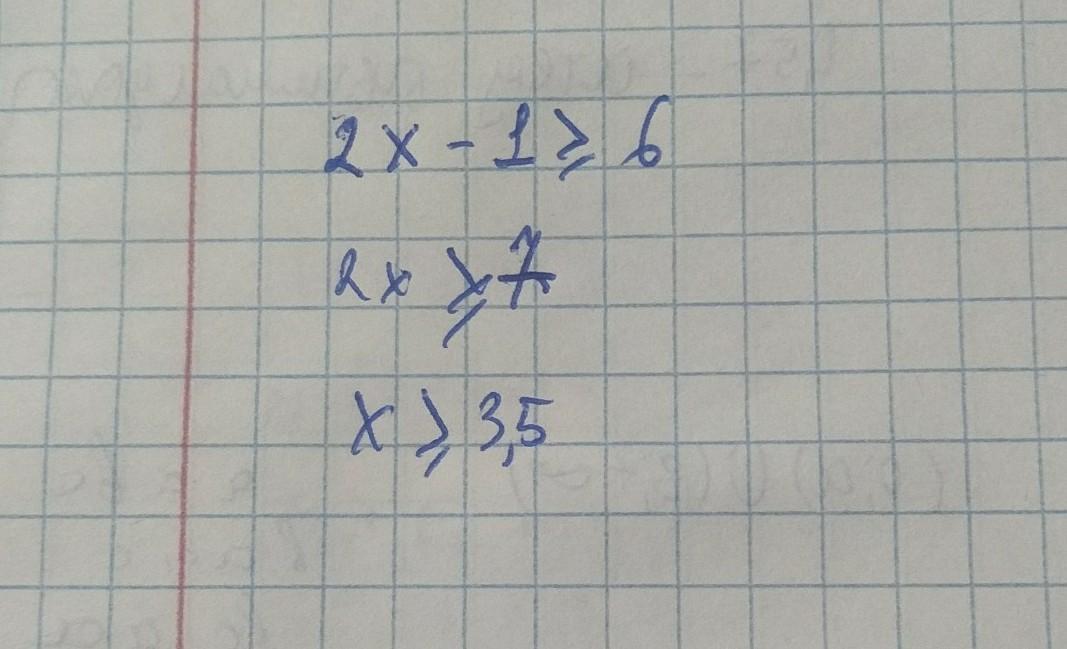 2x - 1 ⩾ 6
2x ⩾ 7
x ⩾ 3,5